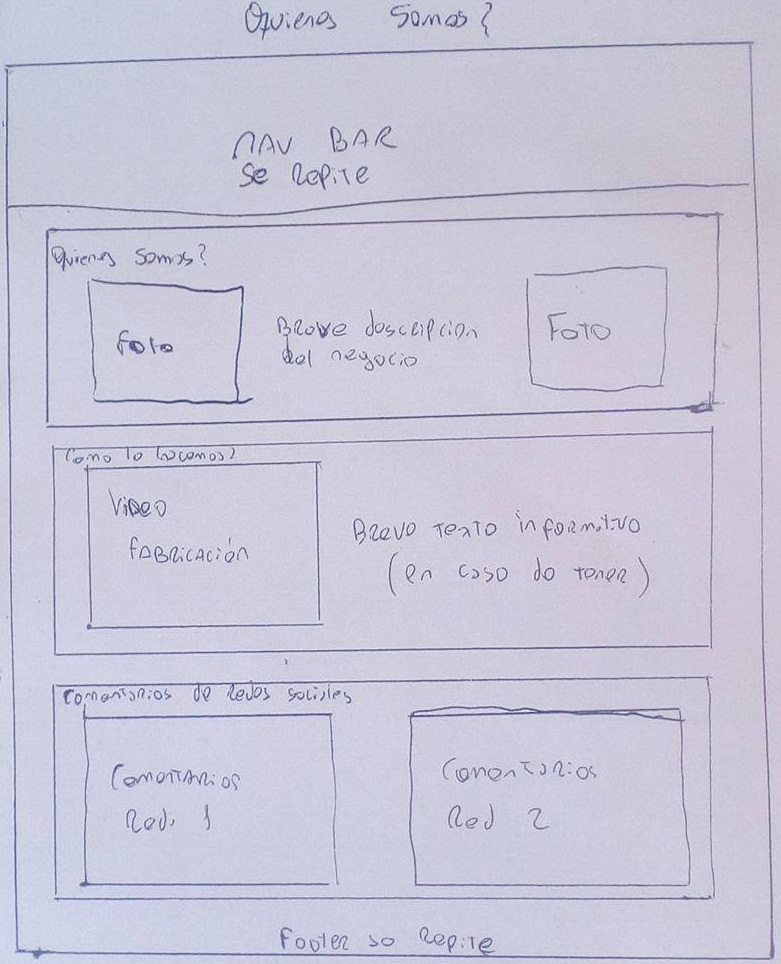 Quienes Somos?
NAV BAR
Se Repite
Quienes Somos?
Foto
Breve descripcion
del negocio
FOTO
Como lo hacemos?
VIDEO
FABRICACIÓN
Breve texto informativo
(en caso de tener)
Comentarios de Redes sociales
Comentarios
Red. 1
Comentarios
Red 2
Footer se Repite